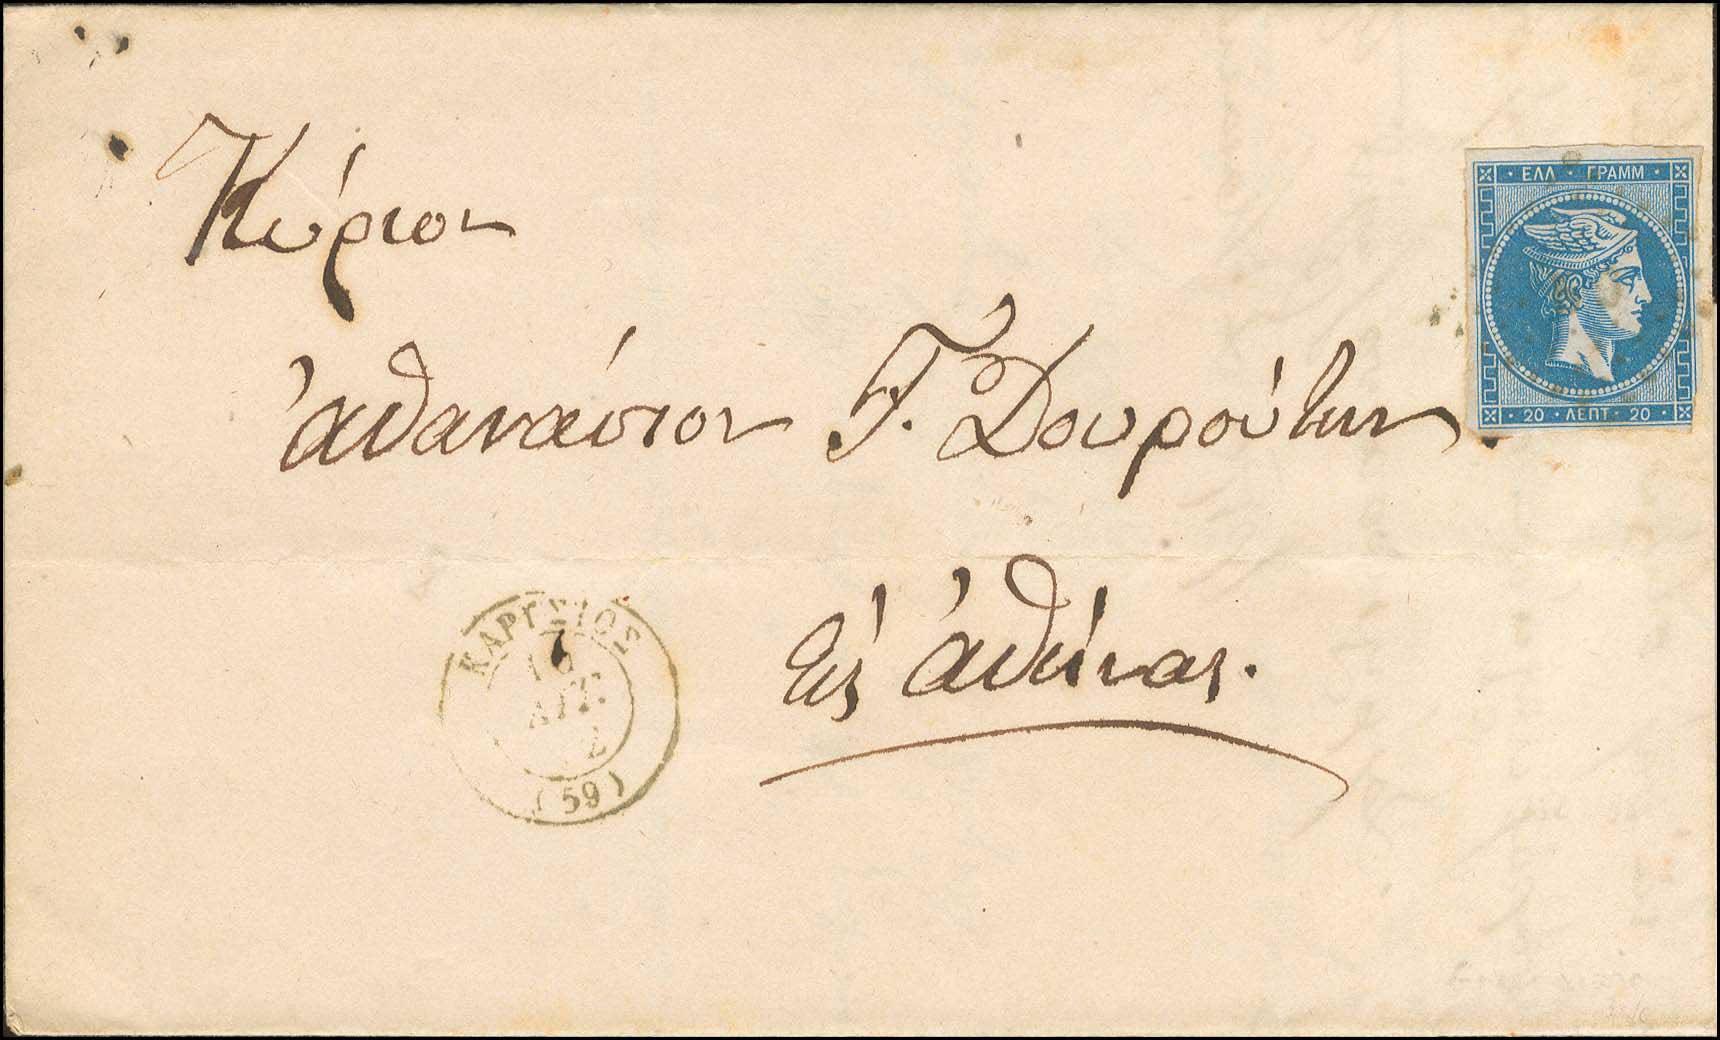 ΕΛΛ · ΓΡΑΜΜ
Κύριον
Ἀθανάσιον Γ. Δουρούτην
20 · ΛΕΠΤ · 20
Εἰς Ἀθήνας.
ΚΑΡΥΣΤΟΣ
ΑΥΓ.
(59)